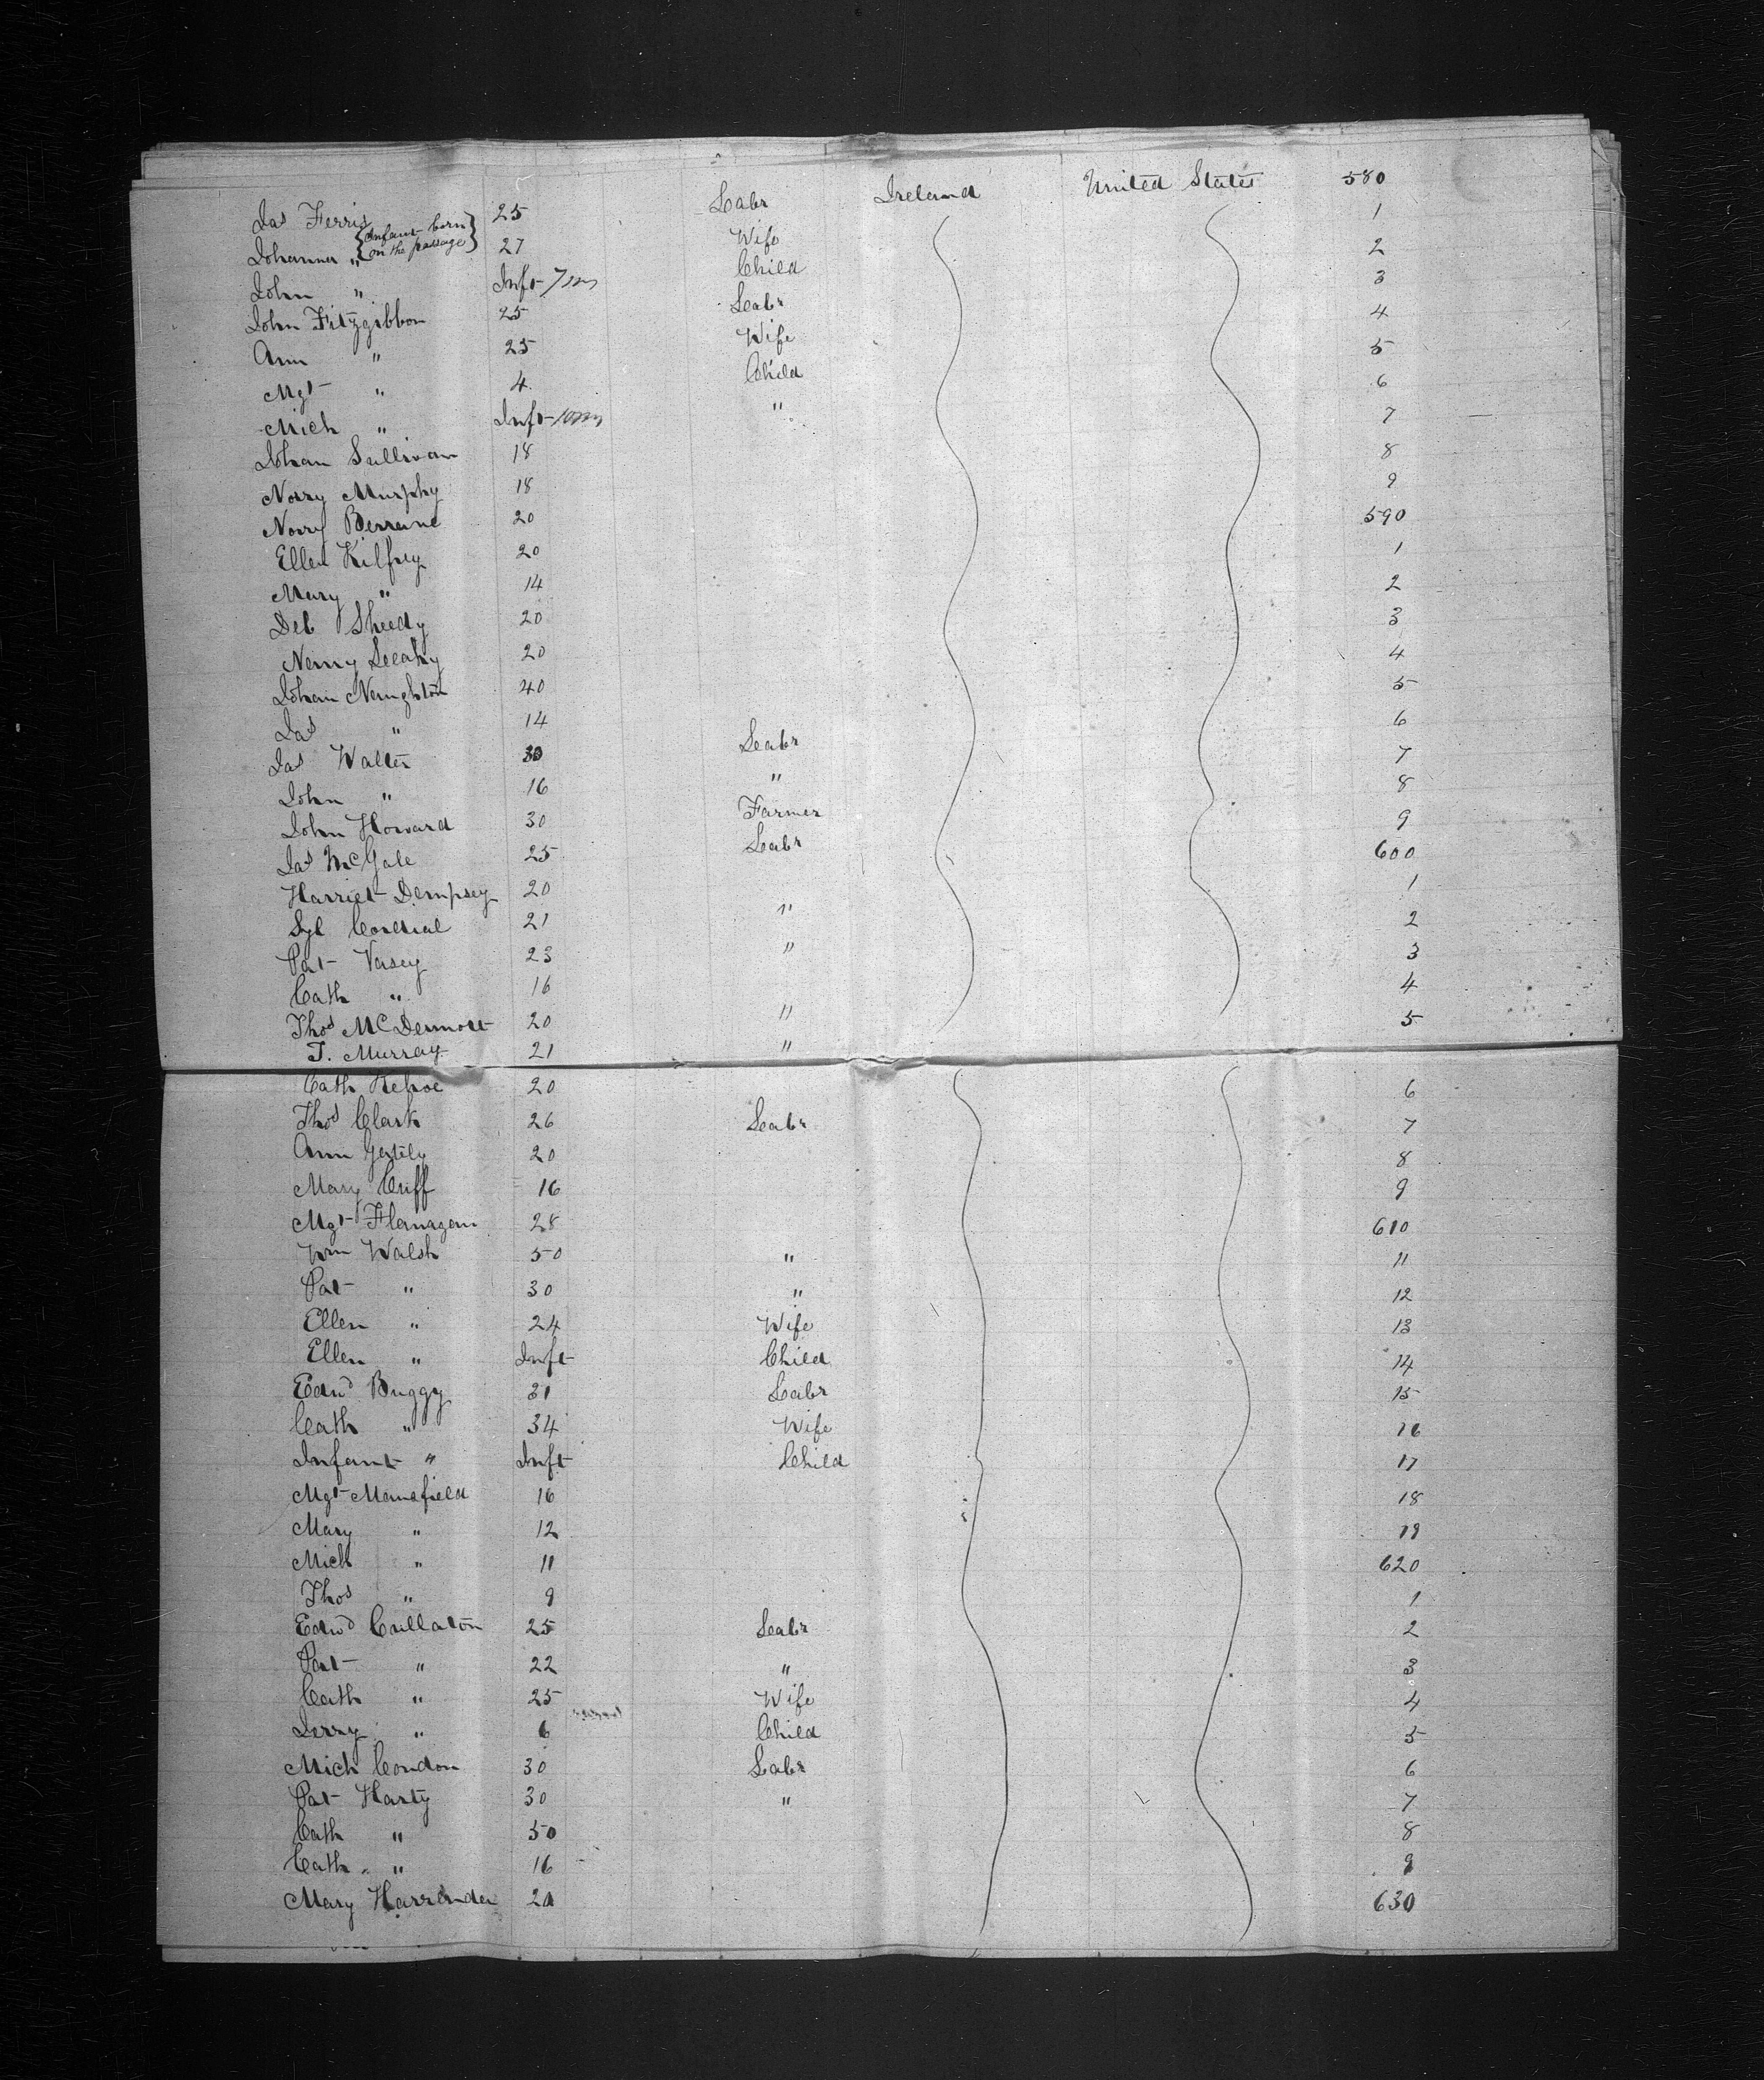 Jas Ferris 25 Labr Ireland United States 580
Johanna " {Infant born on the passage} 27 Wife 1
John " Inft 7m Child 2
John Fitzgibbon 25 Labr 3
Ann " 25 Wife 4
Mgt " 4 Child 5
Mich " Inft 10m " 6
Johan Sullivan 18 7
Norry Murphy 18 8
Norry 20 9
Ellen Kilfrey 20 590
Mary " 14 1
Deb Sheedy 20 2
Leeahy 20 3
Johan Naughton 40 4
Jas " 14 5
Jas Walter 30 Labr 6
John " 16 " 7
John Howard 30 Farmer 8
Jas McGale 25 Labr 9
Harriet Dempsey 20 600
Syl Cordial 21 " 1
Pat Vasey 23 " 2
Cath " 16 3
Thos McDermott 20 " 4
T. Murray 21 " 5
Cath Kehoe 20 6
Thos Clark 26 Labr 7
Ann 20 8
Mary Cuff 16 9
Mgt Flanagan 28 610
Wm Walsh 50 " 11
Pat " 30 " 12
Ellen " 24 Wife 13
Ellen " Inft Child 14
Edwd Buggy 31 Labr 15
Cath " 34 Wife 16
Infant " Inft Child 17
Mgt Mansfield 16 18
Mary " 12 19
Mich " 11 620
Thos " 9 1
Edwd Cullaton 25 Labr 2
Pat " 22 " 3
Cath " 25 Wife 4
Jerry " 6 Child 5
Mich Condon 30 Labr 6
Pat Harty 30 " 7
Cath " 50 8
Cath " 16 9
Mary 20 630